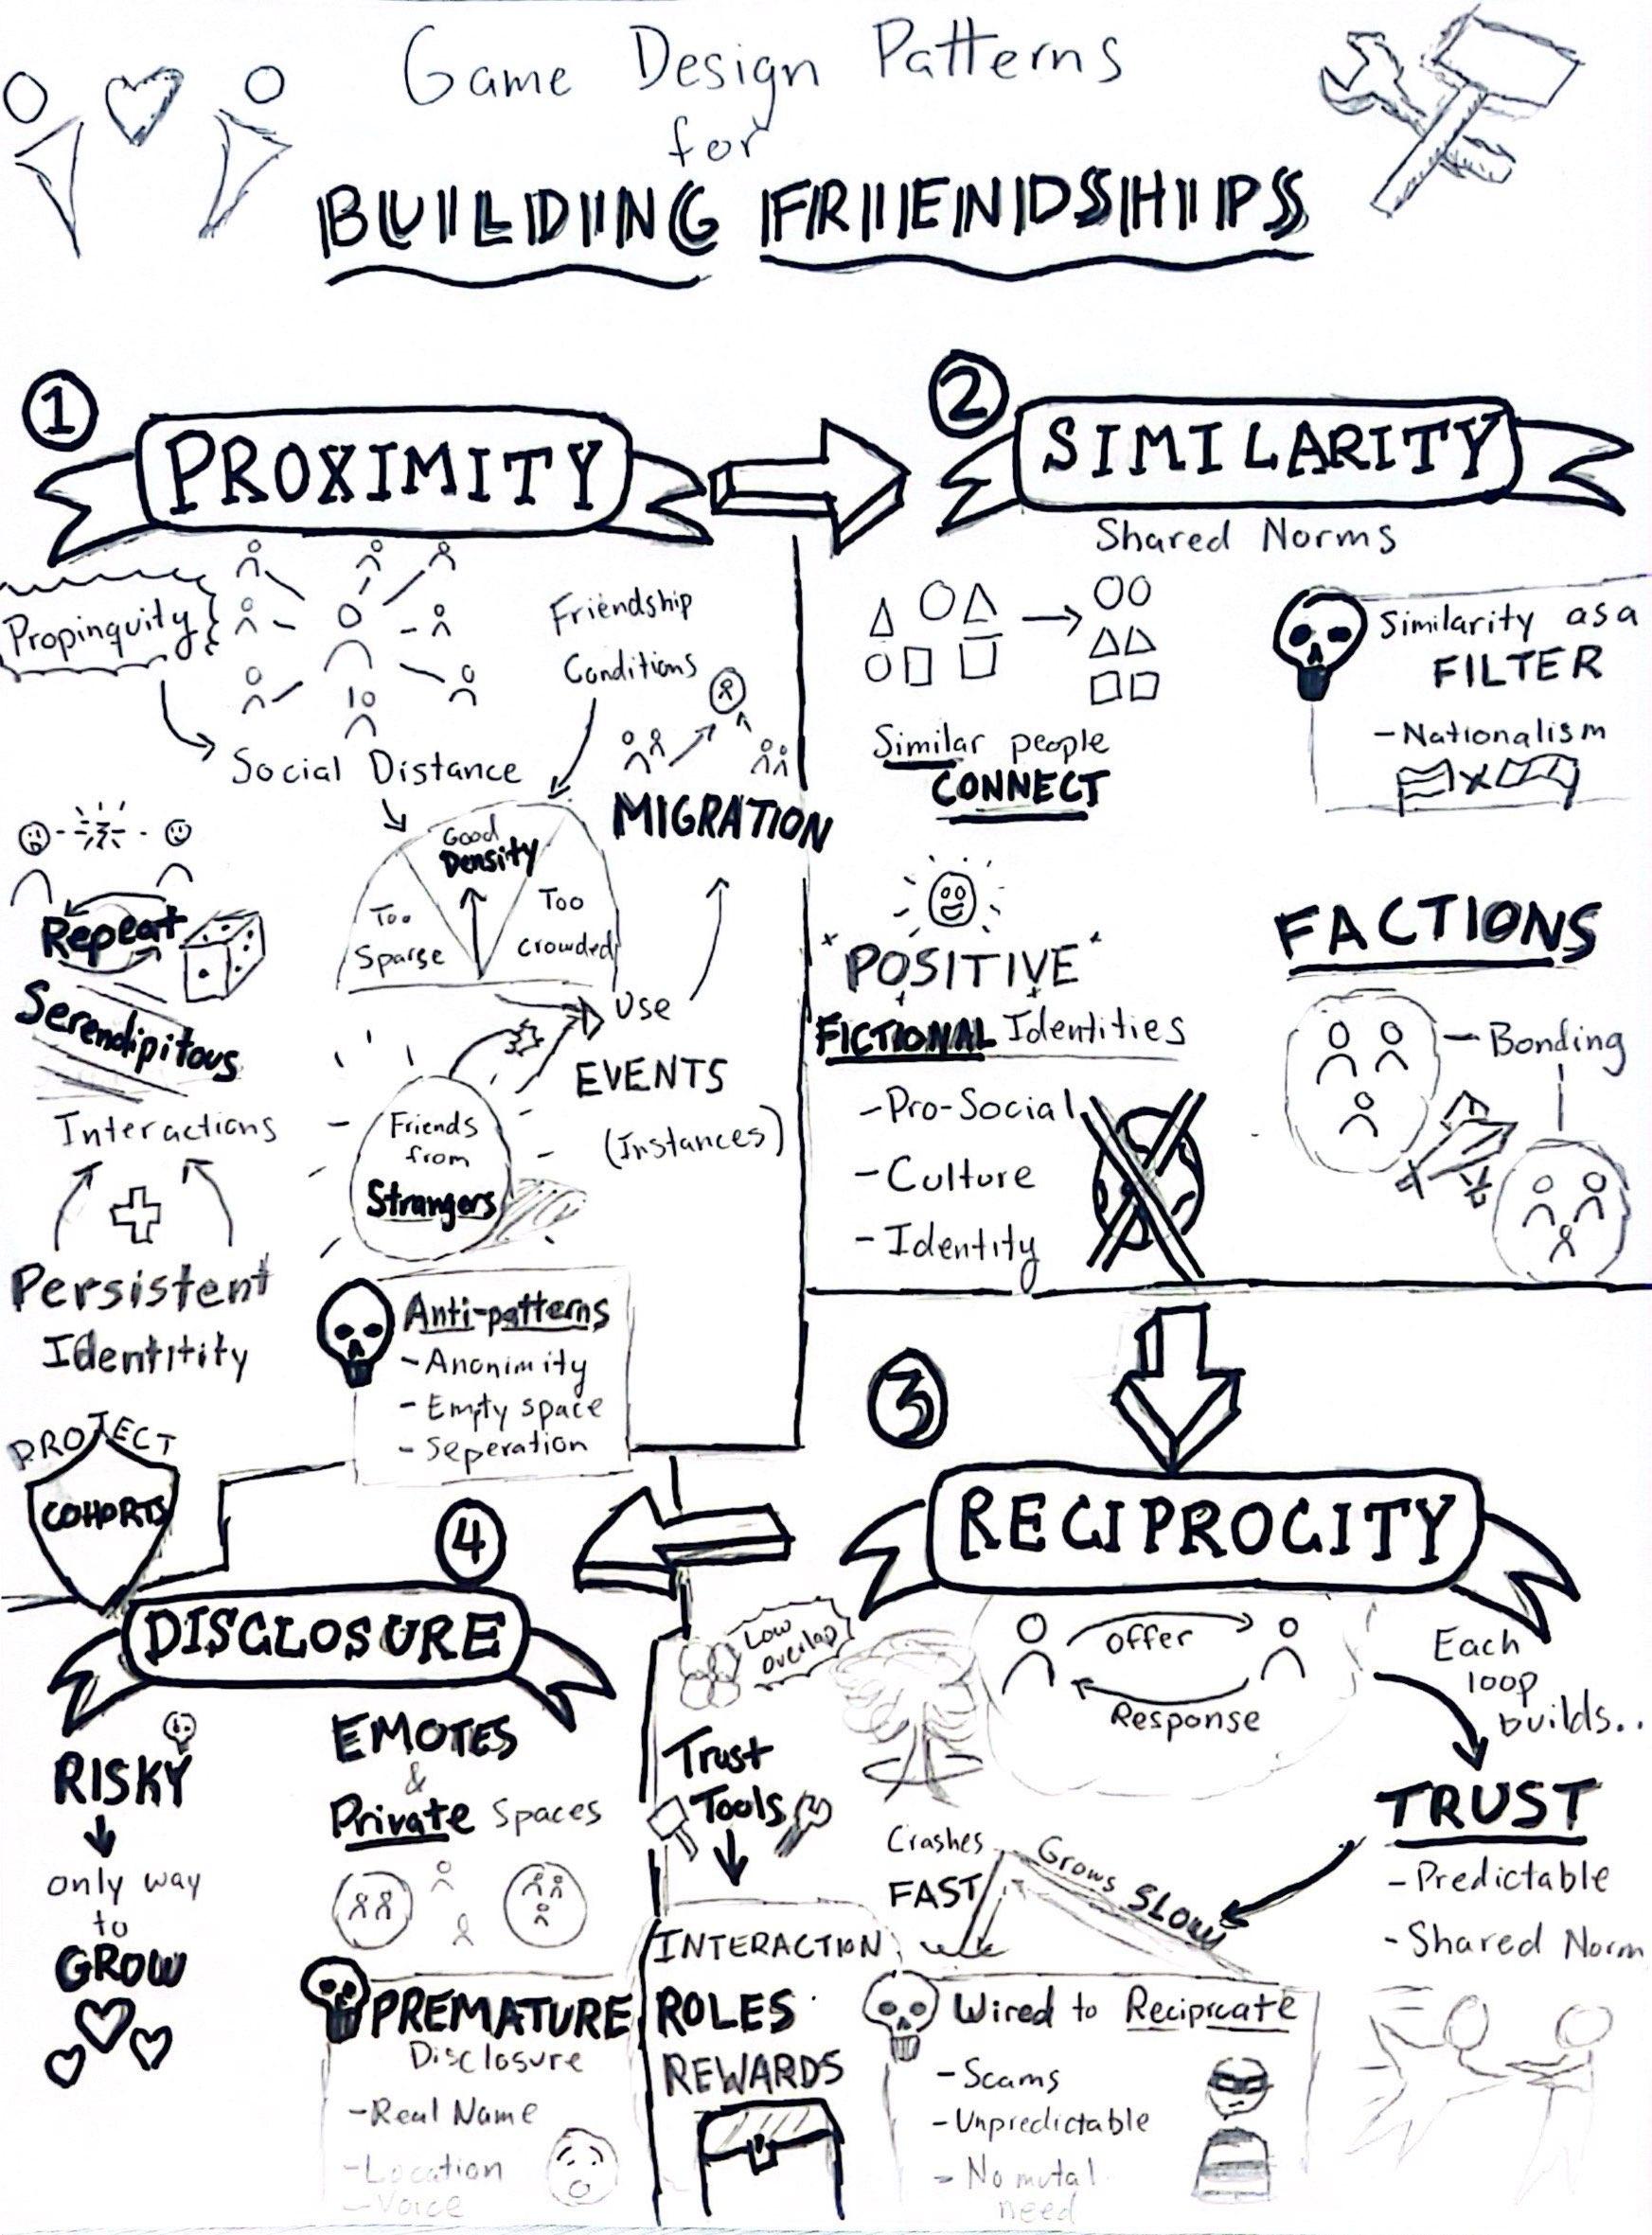 Game Design Patterns
for
BUILDING FRIENDSHIPS
1
PROXIMITY
Propinquity
Social Distance
Friendship
Conditions
MIGRATION
Good
Density
Too
Sparse
Too
crowded
Repeat
Serendipitous
Interactions
Persistent
Identitity
Use
EVENTS
(Instances)
Friends
from
Strangers
Anti-patterns
-Anonimity
-Empty space
-Seperation
PROTECT
COHORTS
2
SIMILARITY
Shared Norms
Similar people
CONNECT
Similarity as a
FILTER
-Nationalism
POSITIVE
FICTIONAL Identities
-Pro-Social
-Culture
-Identity
FACTIONS
-Bonding
3
RECIPROCITY
Offer
Response
Each
loop
builds..
TRUST
-Predictable
-Shared Norm
Crashes
FAST
Grows SLOW
Low
overlap
Trust
Tools
INTERACTION
ROLES
REWARDS
Wired to Reciprocate
-Scams
-Unpredictable
-No mutal
need
4
DISCLOSURE
RISKY
only way
to
GROW
EMOTES
&
Private Spaces
PREMATURE
Disclosure
-Real Name
-Location
-Voice